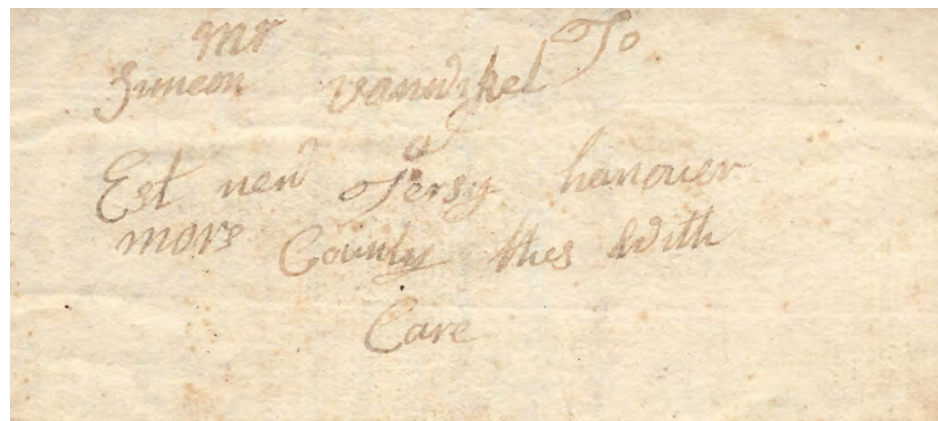 Mr To
Simeon vanwykel
Est new Jersy hanover
mors County thes With
Care